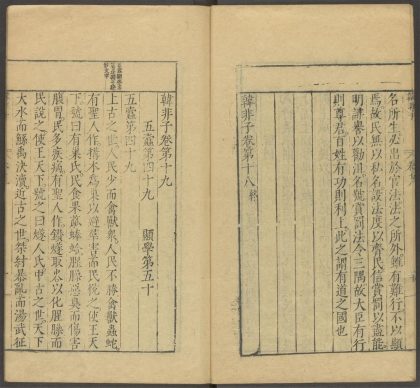 名所生必出於官法法之所外雖有難行不以顯
焉故民無以私名設法度以齊民信賞罰以盡能
明誹譽以勸沮名號賞罰法令三隅故大臣有行
則尊君百姓有功則利上此之謂有道之國也
韓非子卷第十八終
韓非子卷第十九
五蠹第四十九 顯學第五十
五蠹第四十九
上古之世人民少而禽獸衆人民不勝禽獸蟲蛇
有聖人作搆木為巢以避群害而民悅之使王天
下號曰有巢氏民食果蓏蜯蛤腥臊惡臭而傷害
腹胃民多疾病有聖人作鑽燧取火以化腥臊而
民說之使王天下號之曰燧人氏中古之世天下
大水而鯀禹決瀆近古之世桀紂暴亂而湯武征